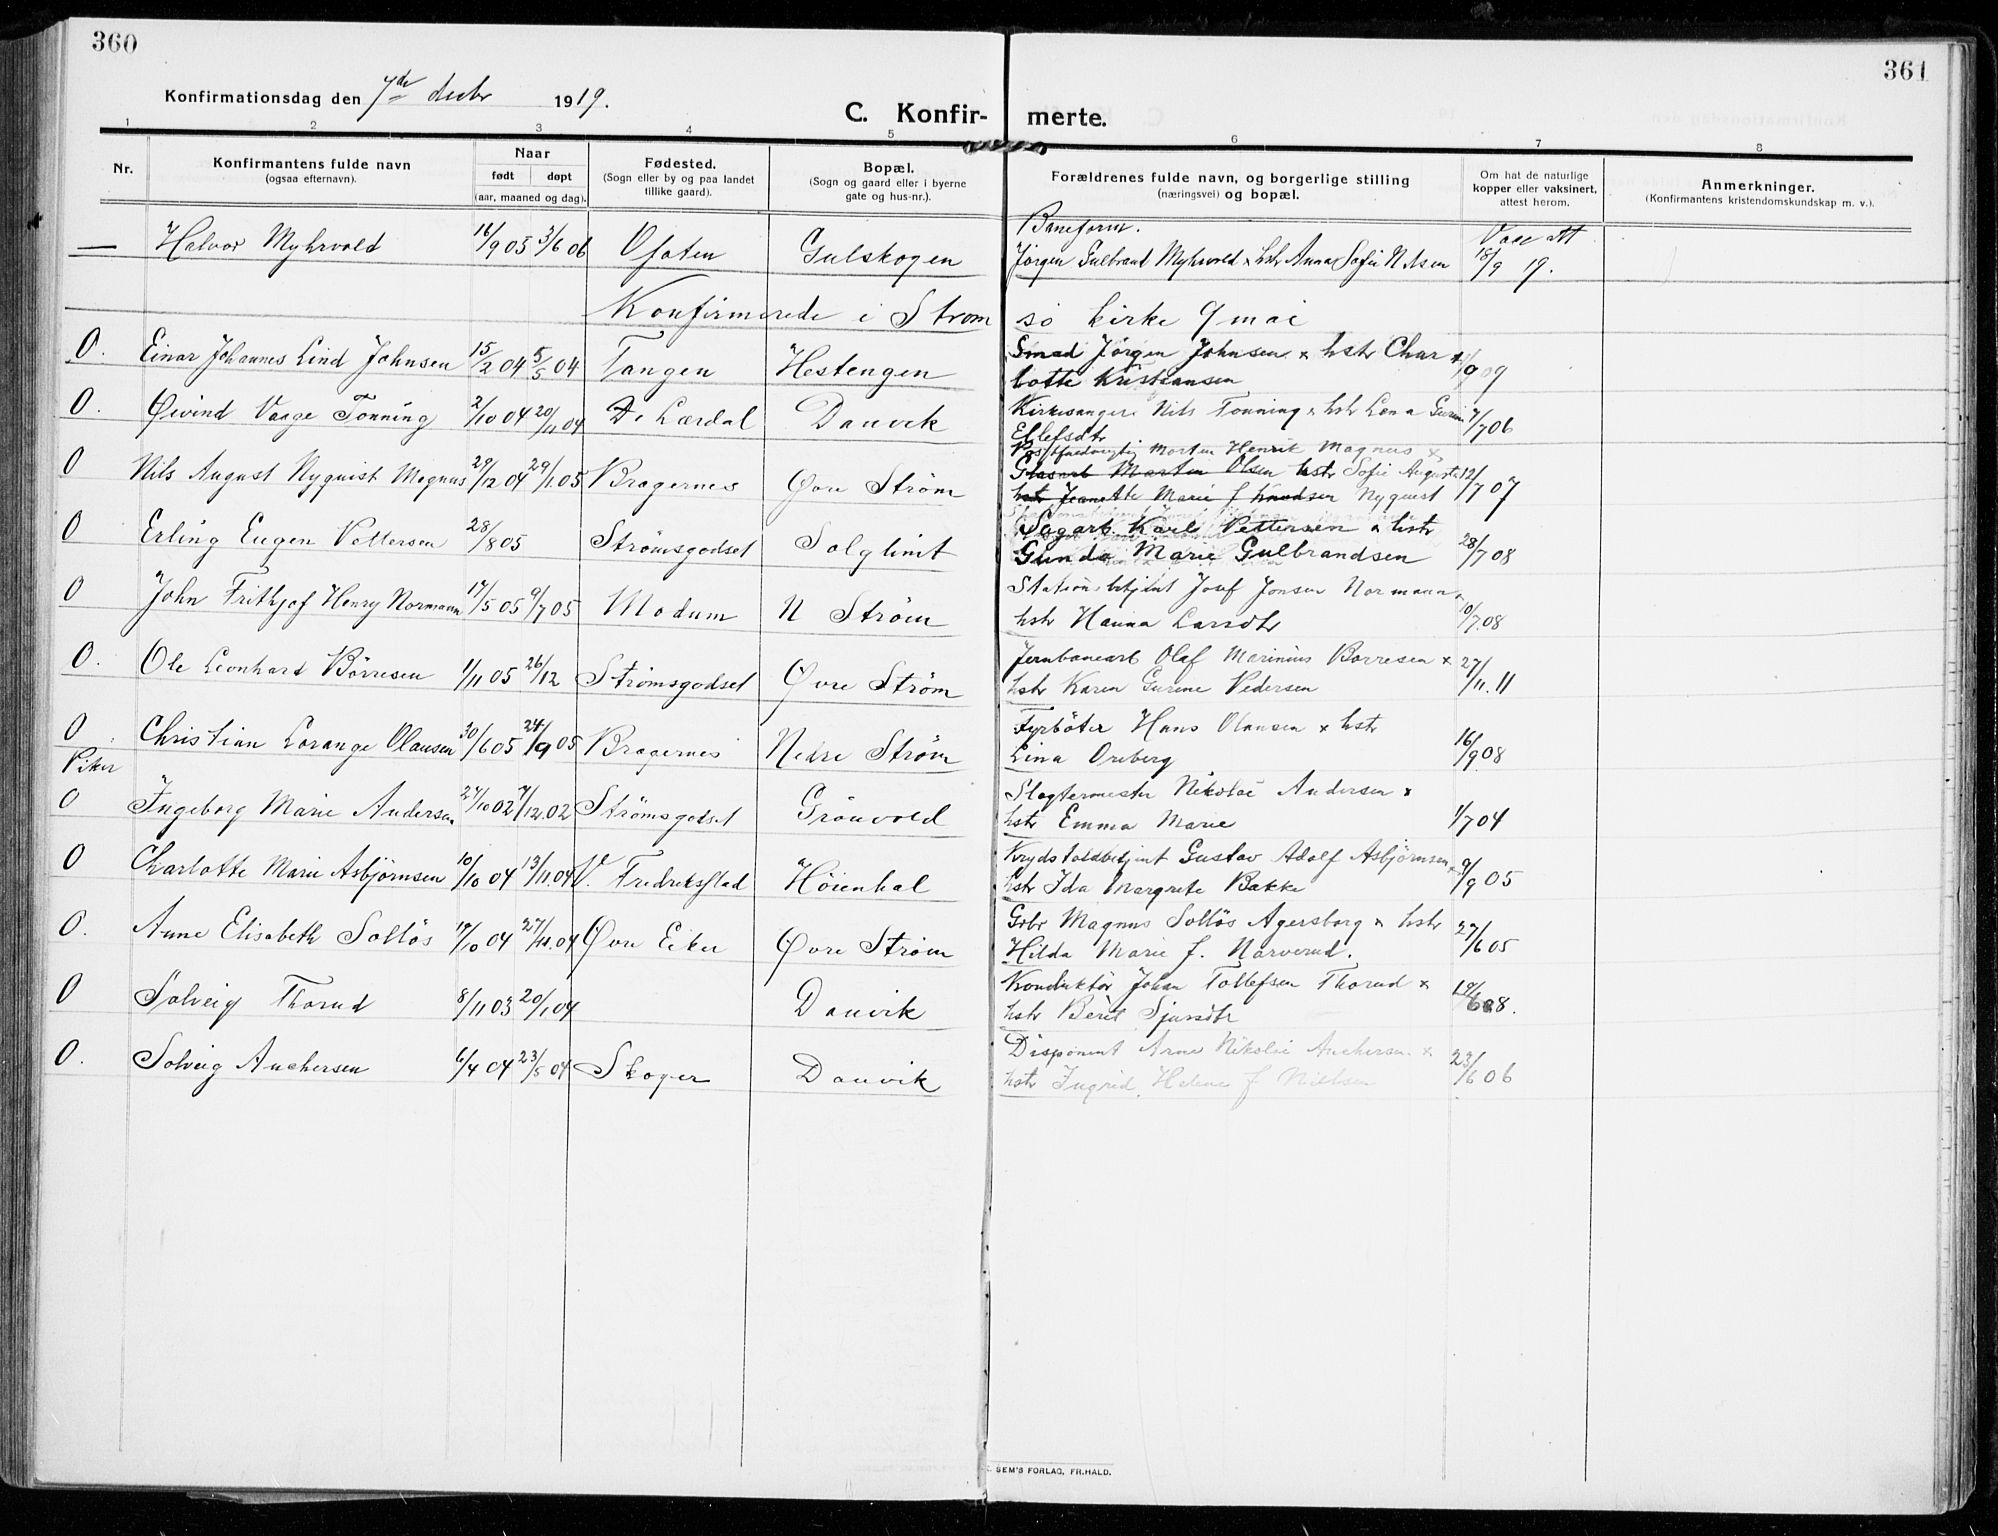 360
361
Konfirmationsdag den 7de decbr 1919.
C. Konfir- merte.
1 2 3 4 5 6 7 8
Nr.
Konfirmantens fulde navn
(ogsaa efternavn).
Naar
født døpt
(aar, maaned og dag).
Fødested.
(Sogn eller by og paa landet
tillike gaard).
Bopæl.
(Sogn og gaard eller i byerne
gate og hus-nr.).
Forældrenes fulde navn, og borgerlige stilling
(næringsvei) og bopæl.
Om hat de naturlige
kopper eller vaksinert,
attest herom.
Anmerkninger.
(Konfirmantens kristendomskundskap m. v.).
Baneform. Vacc att
— Halvor Myhrvold 16/9 05 3/6 06 Ofoten Gulskogen Jørgen Gulbrand Myhrvold x hstr Anna Sofie Nilsen 18/9 19.
Konfirmerede i Strøm sø kirke 9 mai
O. Einar Johannes Lind Johnsen 15/2 04 5/5 04 Tangen Hestengen Smed Jørgen Johnsen x hstr Char
lotte Kristiansen /9 09
O. Øivind Vaage Tonning 2/10 04 20/11 04 Lærdal Danvik Kirkesanger Nils Tonning x hstr Lena
Ellefsdtr 7/7 06
O Nils August Nyquist Magnus 29/12 04 29/1.05 Bragernes Øvre Strøm Morten Henrik Magnus x
Glasarb Morten Olsen hstr Sofie Augusta 12/7 07
hstr Jeanette Marie f Knudsen Nyquist
O Erling Eugen Pettersen 28/8 05 Strømsgodset Solglimt Sagarb. Karl Pettersen x hstr
Gunda Marie Gulbrandsen 28/7 08
O John Frithjof Henry Normann 17/5 05 9/7 05 Modum N Strøm Stationsbetjent Josef Jonsen Normann x
hstr Hanna Larsdtr 10/7.08
O. Ole Leonhard Børresen 1/11 05 26/12 Strømsgodset Øvre Strøm Jernbanearb Olaf Marinius Børresen x
hstr Karen Gurine Pedersen 27/11.11
O Christian Lorange Olausen 30/6 05 24/9 05 Bragernes Nedre Strøm Fyrbøter Hans Olausen x hstr
Lina Oreberg 16/9 08
Piker
O Ingeborg Marie Andersen 27/10 02 7/12.02 Strømsgodset Grønvold Slagtermester Nikolai Andersen x
hstr Emma Marie 1/7 04
O Charlotte Marie Asbjørnsen 10/10 04 13/11.04 V. Fredrikstad Høienhal Krydstoldbetjent Gustav Adolf Asbjørnsen x
hstr Ida Margrete Bakke 9/9 05
O. Anne Elisabeth Soltøs 17/10 04 27/11.04 Øvre Eiker Øvre Strøm Grbr Magnus Soltøs Agersborg x hstr
Hilda Marie f. Narverud. 27/6 05
O Solveig Thorud 8/11 03 20/1 04 Danvik Konduktør Johan Tollefsen Thorud x
hstr Berit Sjursdtr 19/6 08.
O. Solveig Anchersen 6/4 04 23/5 04 Skoger Danvik Disponent Arne Nikolai Anchersen x
hstr Ingrid Helene f Nielsen 23/6 06
SEM'S FORLAG, FR.HALD.